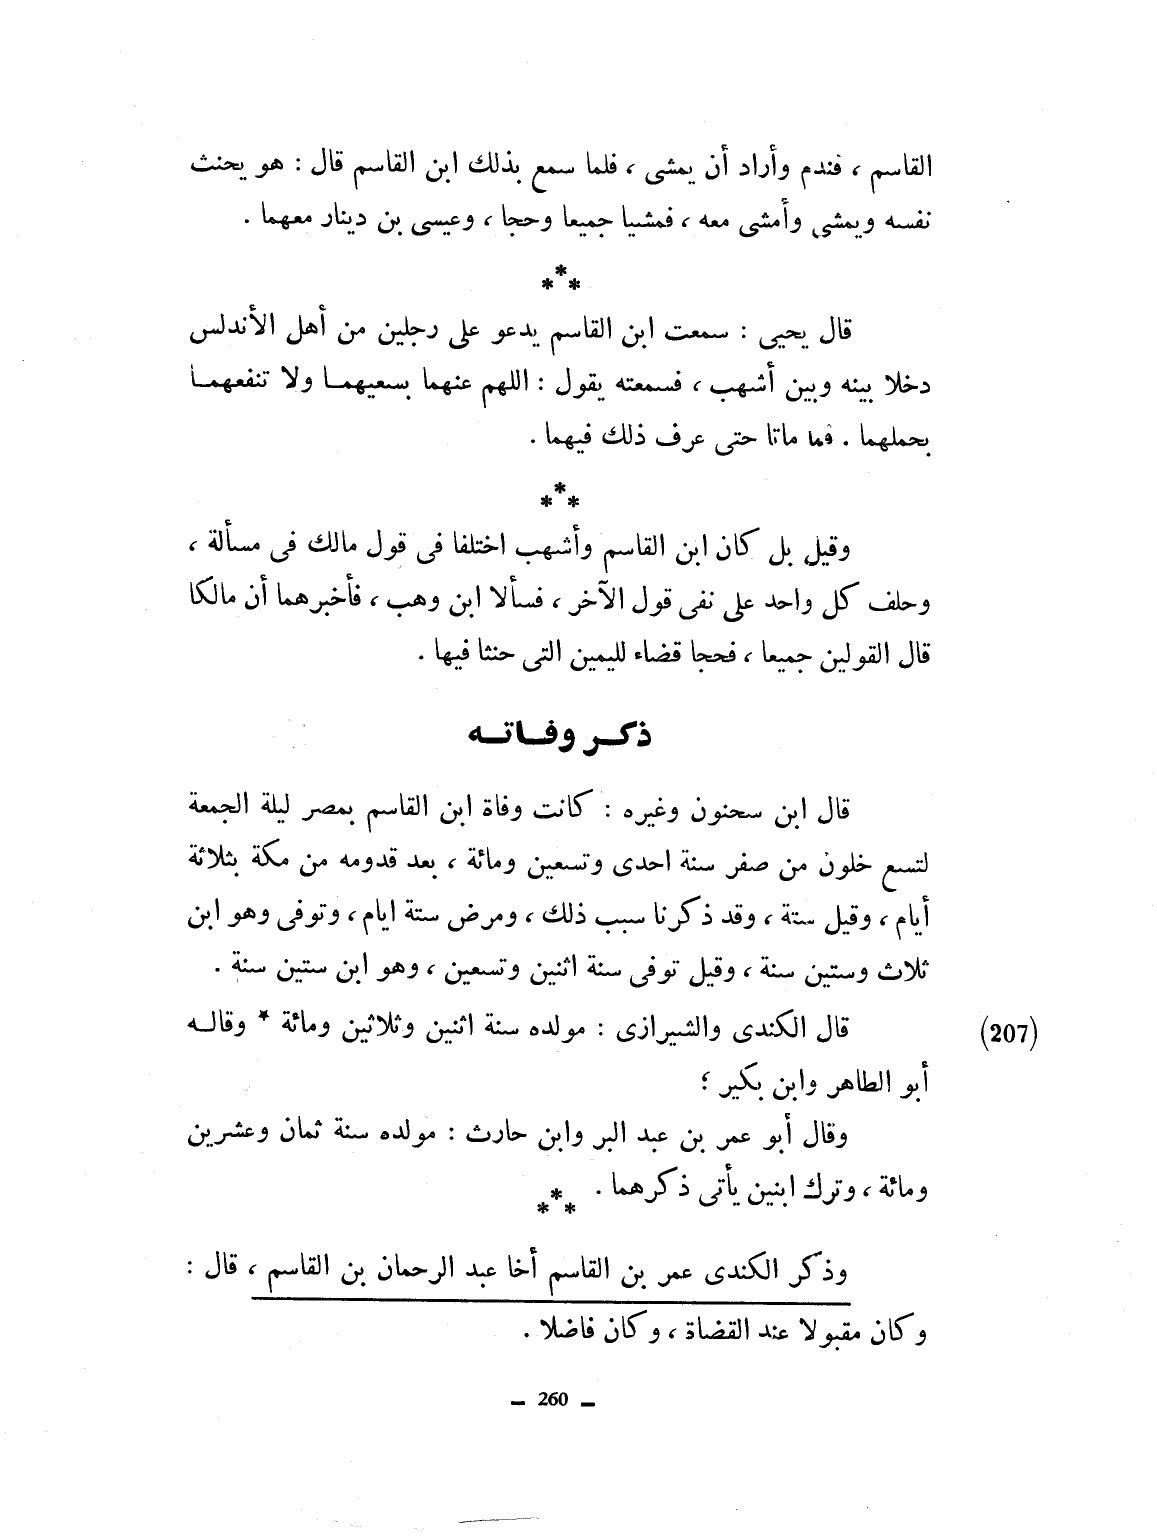 القاسم ، فندم وأراد أن يمشى ، فلما سمع بذلك ابن القاسم قال : هو يحنث
نفسه ويمشى وأمشى معه ، فمشيا جميعا وحجا ، وعيسى بن دينار معهما .
***
قال يحيى : سمعت ابن القاسم يدعو على رجلين من أهل الأندلس
دخلا بينه وبين أشهب ، فسمعته يقول : اللهم عنهما بسعيهما ولا تنفعهما
بحملهما . فما ماتا حتى عرف ذلك فيهما .
***
وقيل بل كان ابن القاسم وأشهب اختلفا فى قول مالك فى مسألة ،
وحلف كل واحد على نفى قول الآخر ، فسألا ابن وهب ، فأخبرهما أن مالكا
قال القولين جميعا ، فحجا قضاء لليمين التى حنثا فيها .
ذكر وفاته
قال ابن سحنون وغيره : كانت وفاة ابن القاسم بمصر ليلة الجمعة
لتسع خلون من صفر سنة احدى وتسعين ومائة ، بعد قدومه من مكة بثلاثة
أيام ، وقيل ستة ، وقد ذكرنا سبب ذلك ، ومرض ستة ايام ، وتوفى وهو ابن
ثلاث وستين سنة ، وقيل توفى سنة اثنين وتسعين ، وهو ابن ستين سنة .
(207) قال الكندى والشيرازى : مولده سنة اثنين وثلاثين ومائة * وقاله
أبو الطاهر وابن بكير ؛
وقال أبو عمر بن عبد البر وابن حارث : مولده سنة ثمان وعشرين
ومائة ، وترك ابنين يأتى ذكرهما .
***
وذكر الكندى عمر بن القاسم أخا عبد الرحمان بن القاسم ، قال :
وكان مقبولا عند القضاة ، وكان فاضلا .
– 260 –